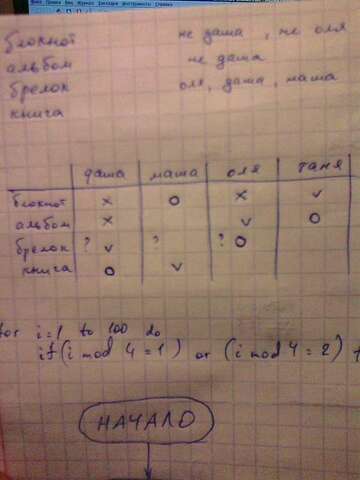 блокнот не даша, не оля
альбом не даша
брелок оля, даша, маша
книга
даша маша оля таня
блокнот x o x v
альбом x v o
брелок ? v ? ? o
книга o v
for i=1 to 100 do
if (i mod 4 = 1) or (i mod 4 = 2) t
НАЧАЛО